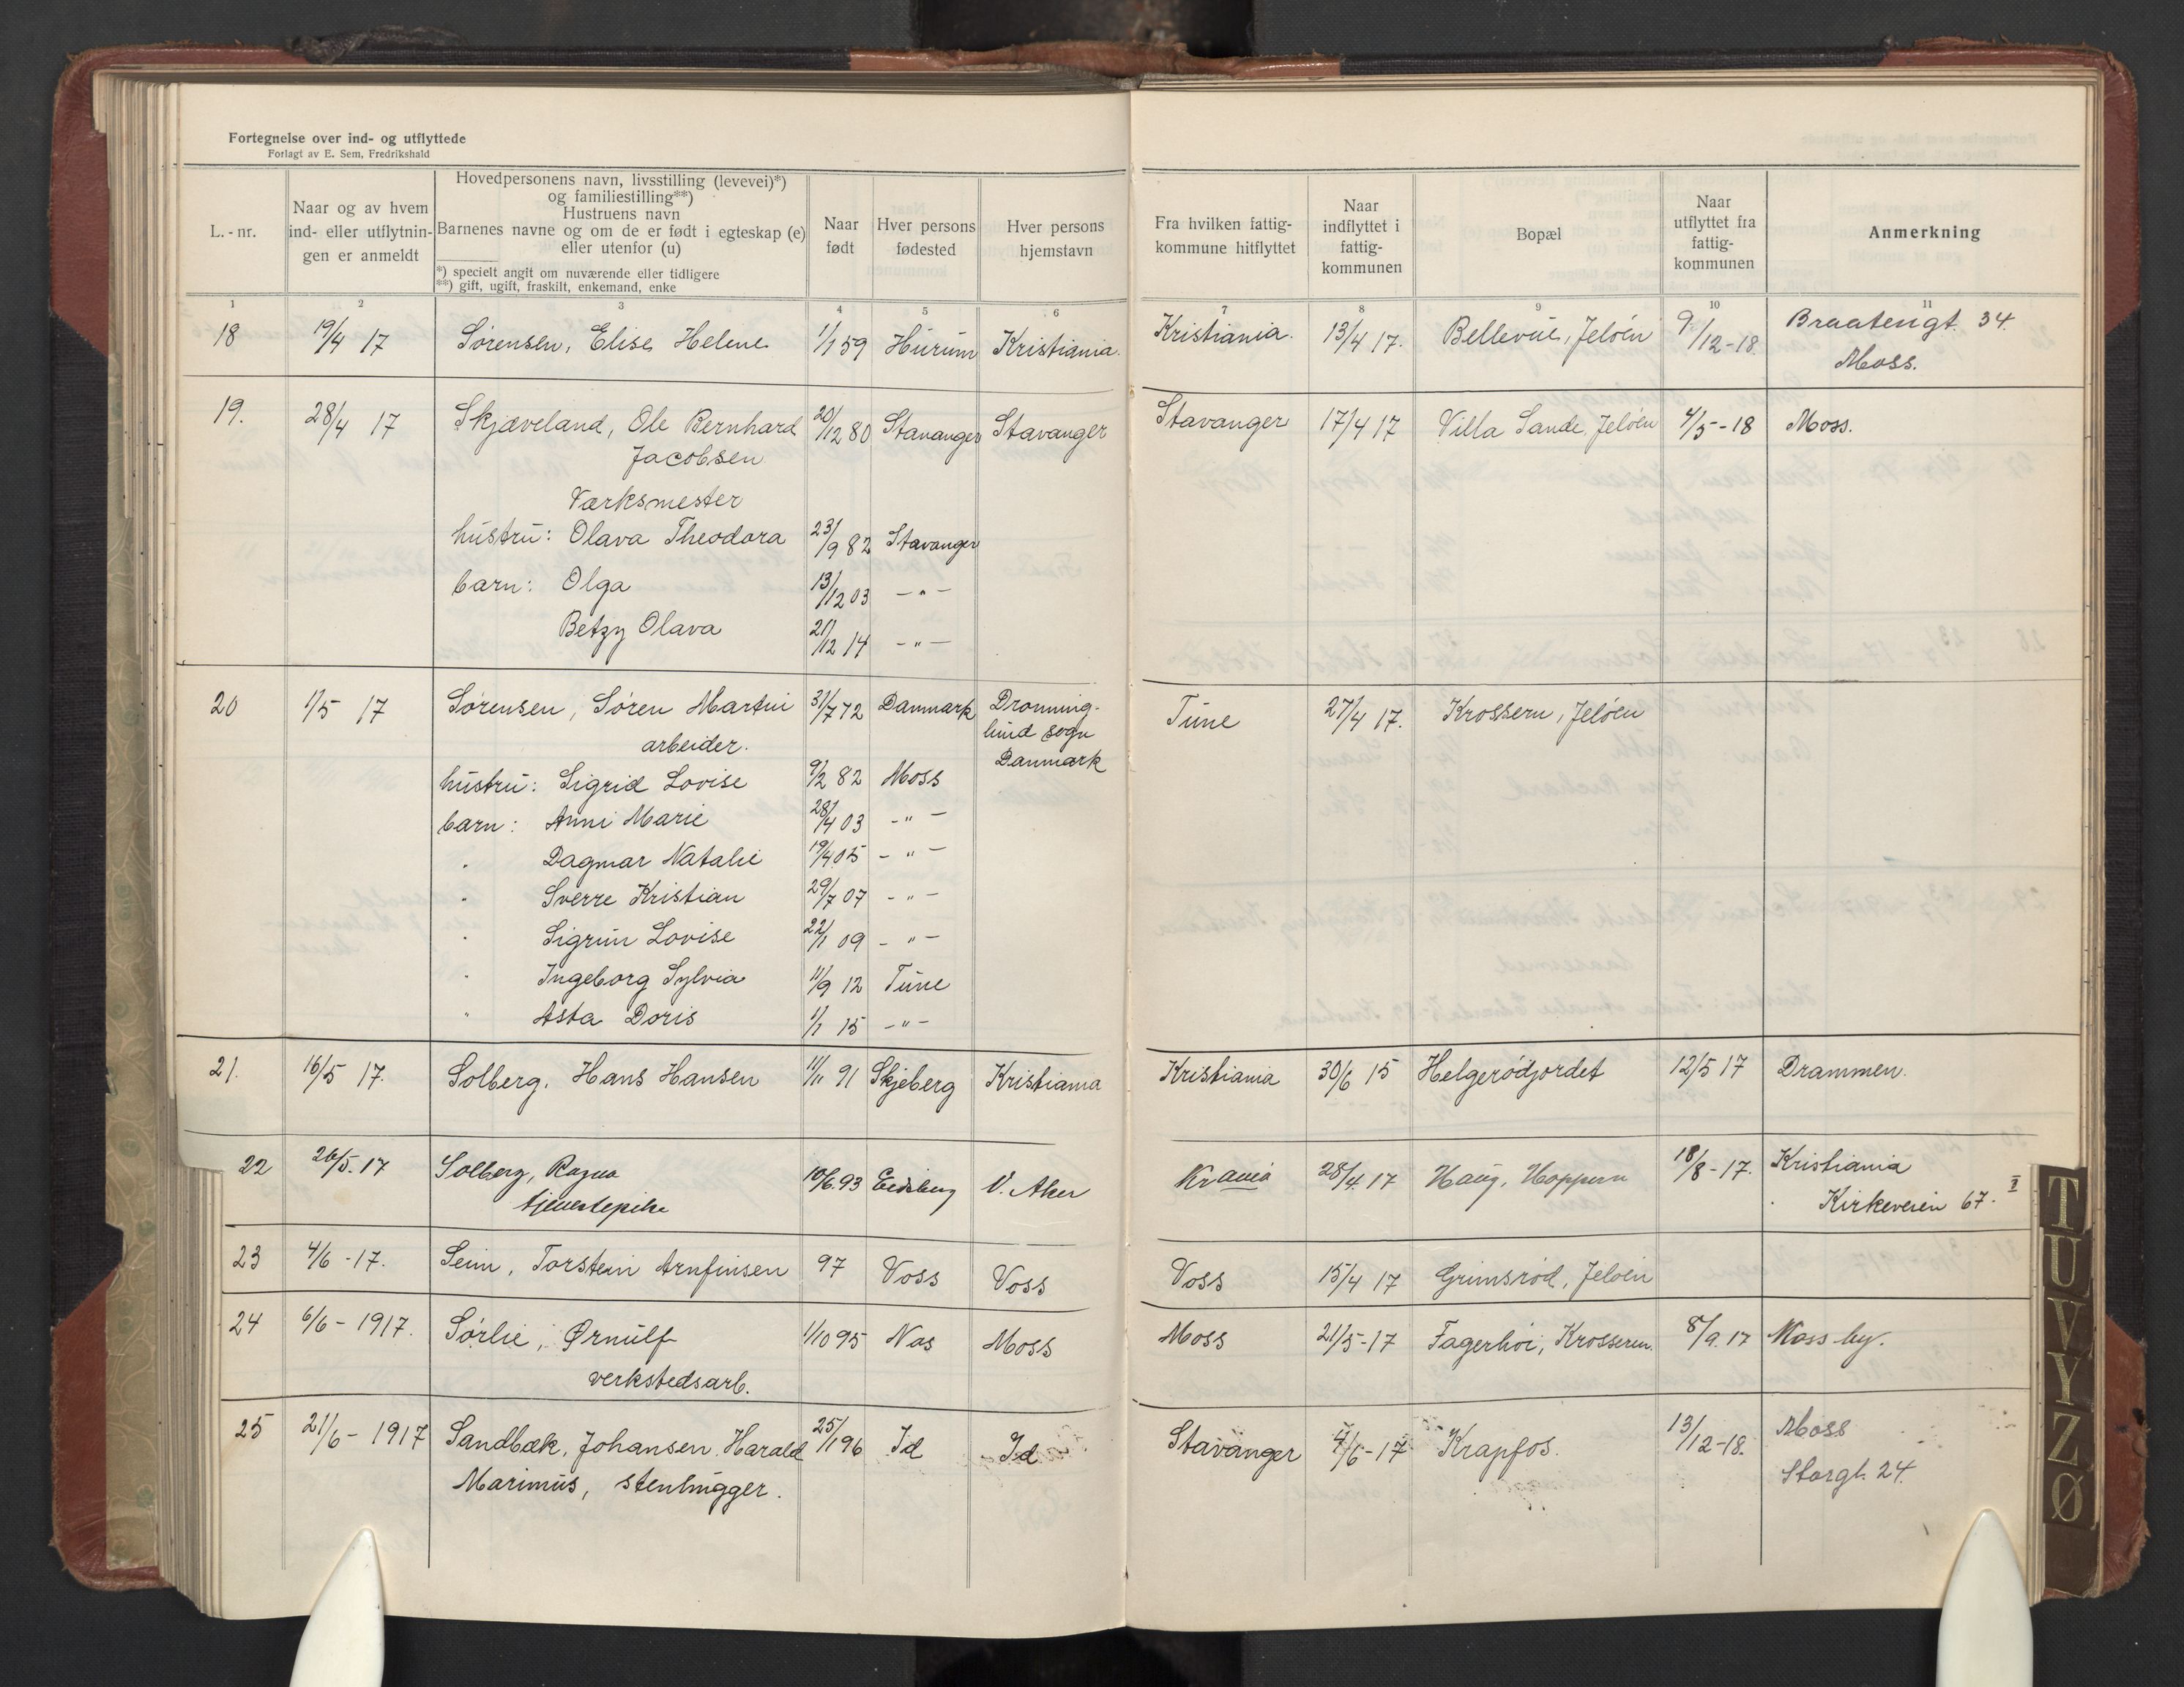 Fortegnelse over ind- og utflyttede
Forlagt av E. Sem, Fredrikshald
L.-nr.
Naar og av hvem
ind- eller utflytnin-
gen er anmeldt
Hovedpersonens navn, livsstilling (levevei)*)
og familiestilling**)
Hustruens navn
Barnenes navne og om de er født i egteskap (e)
eller utenfor (u)
*) specielt angit om nuværende eller tidligere
**) gift, ugift, fraskilt, enkemand, enke
Naar
født
Hver persons
fødested
Hver persons
hjemstavn
Fra hvilken fattig-
kommune hitflyttet
Naar
indflyttet i
fattig-
kommunen
Bopæl
Naar
utflyttet fra
fattig-
kommunen
Anmerkning
1 2 3 4 5 6 7 8 9 10 11
18 19/4 17 Sørensen, Elise Helene 1/1 59 Hurum Kristiania. Kristiania. 13/4 17. Bellevue, Jeløen 9/12-18. Braatengt. 34.
Moss.
19. 28/4 17 Skjæveland, Ole Bernhard 20/12 80 Stavanger Stavanger Stavanger 17/4 17 Villa Sande, Jeløen 4/5-18 Moss.
Jacobsen
Værksmester
hustru: Olava Theodora 23/9 82 Stavanger
barn: Olga 13/12 03 -"-
Betzy Olava 21/12 14 -"-
20 1/5 17 Sørensen, Søren Martin 31/7 72 Danmark Dronning- Tune 27/4 17. Krossern, Jeløen
arbeider. lund sogn
Danmark
hustru: Sigrid Lovise 9/2 82 Moss
barn: Anni Marie 28/4 03 -"-
" Dagmar Natalie 19/4 05 -"-
" Sverre Kristian 29/7 07 -"-
" Sigrun Lovise 22/1 09 -"-
" Ingeborg Sylvia 11/9 12 Tune
" Asta Doris 1/1 15 -"-
21. 16/5 17. Solberg, Hans Hansen 11/11 91 Skjeberg Kristiania Kristiania 30/6 15 Helgerødjordet 12/5 17 Drammen.
22 26/5. 17 Solberg, Ragna 10/6. 93 Eidsberg V. Aker Krania 28/4. 17 Haug, Hoppern 18/8-17. Kristiania
tjenestepike Kirkeveien 67. I
23 4/6-17. Seim, Torstein Arnfinsen 97 Voss Voss Voss 15/4 17 Grimsrød, Jeløen
24 6/6-1917. Sørlie, Ørnulf 1/10 95 Nes Moss Moss 21/5-17 Fagerhøi, Krosseren. 8/9. 17 Moss by.
verkstedsarb.
25 21/6-1917 Sandbæk, Johansen Harald 25/1 96 Id Id Stavanger 4/6-17 Krapfos. 13/12-18. Moss
Marinius, stenhugger. Storgt. 24.
T
U
V
Y
Z
Ø